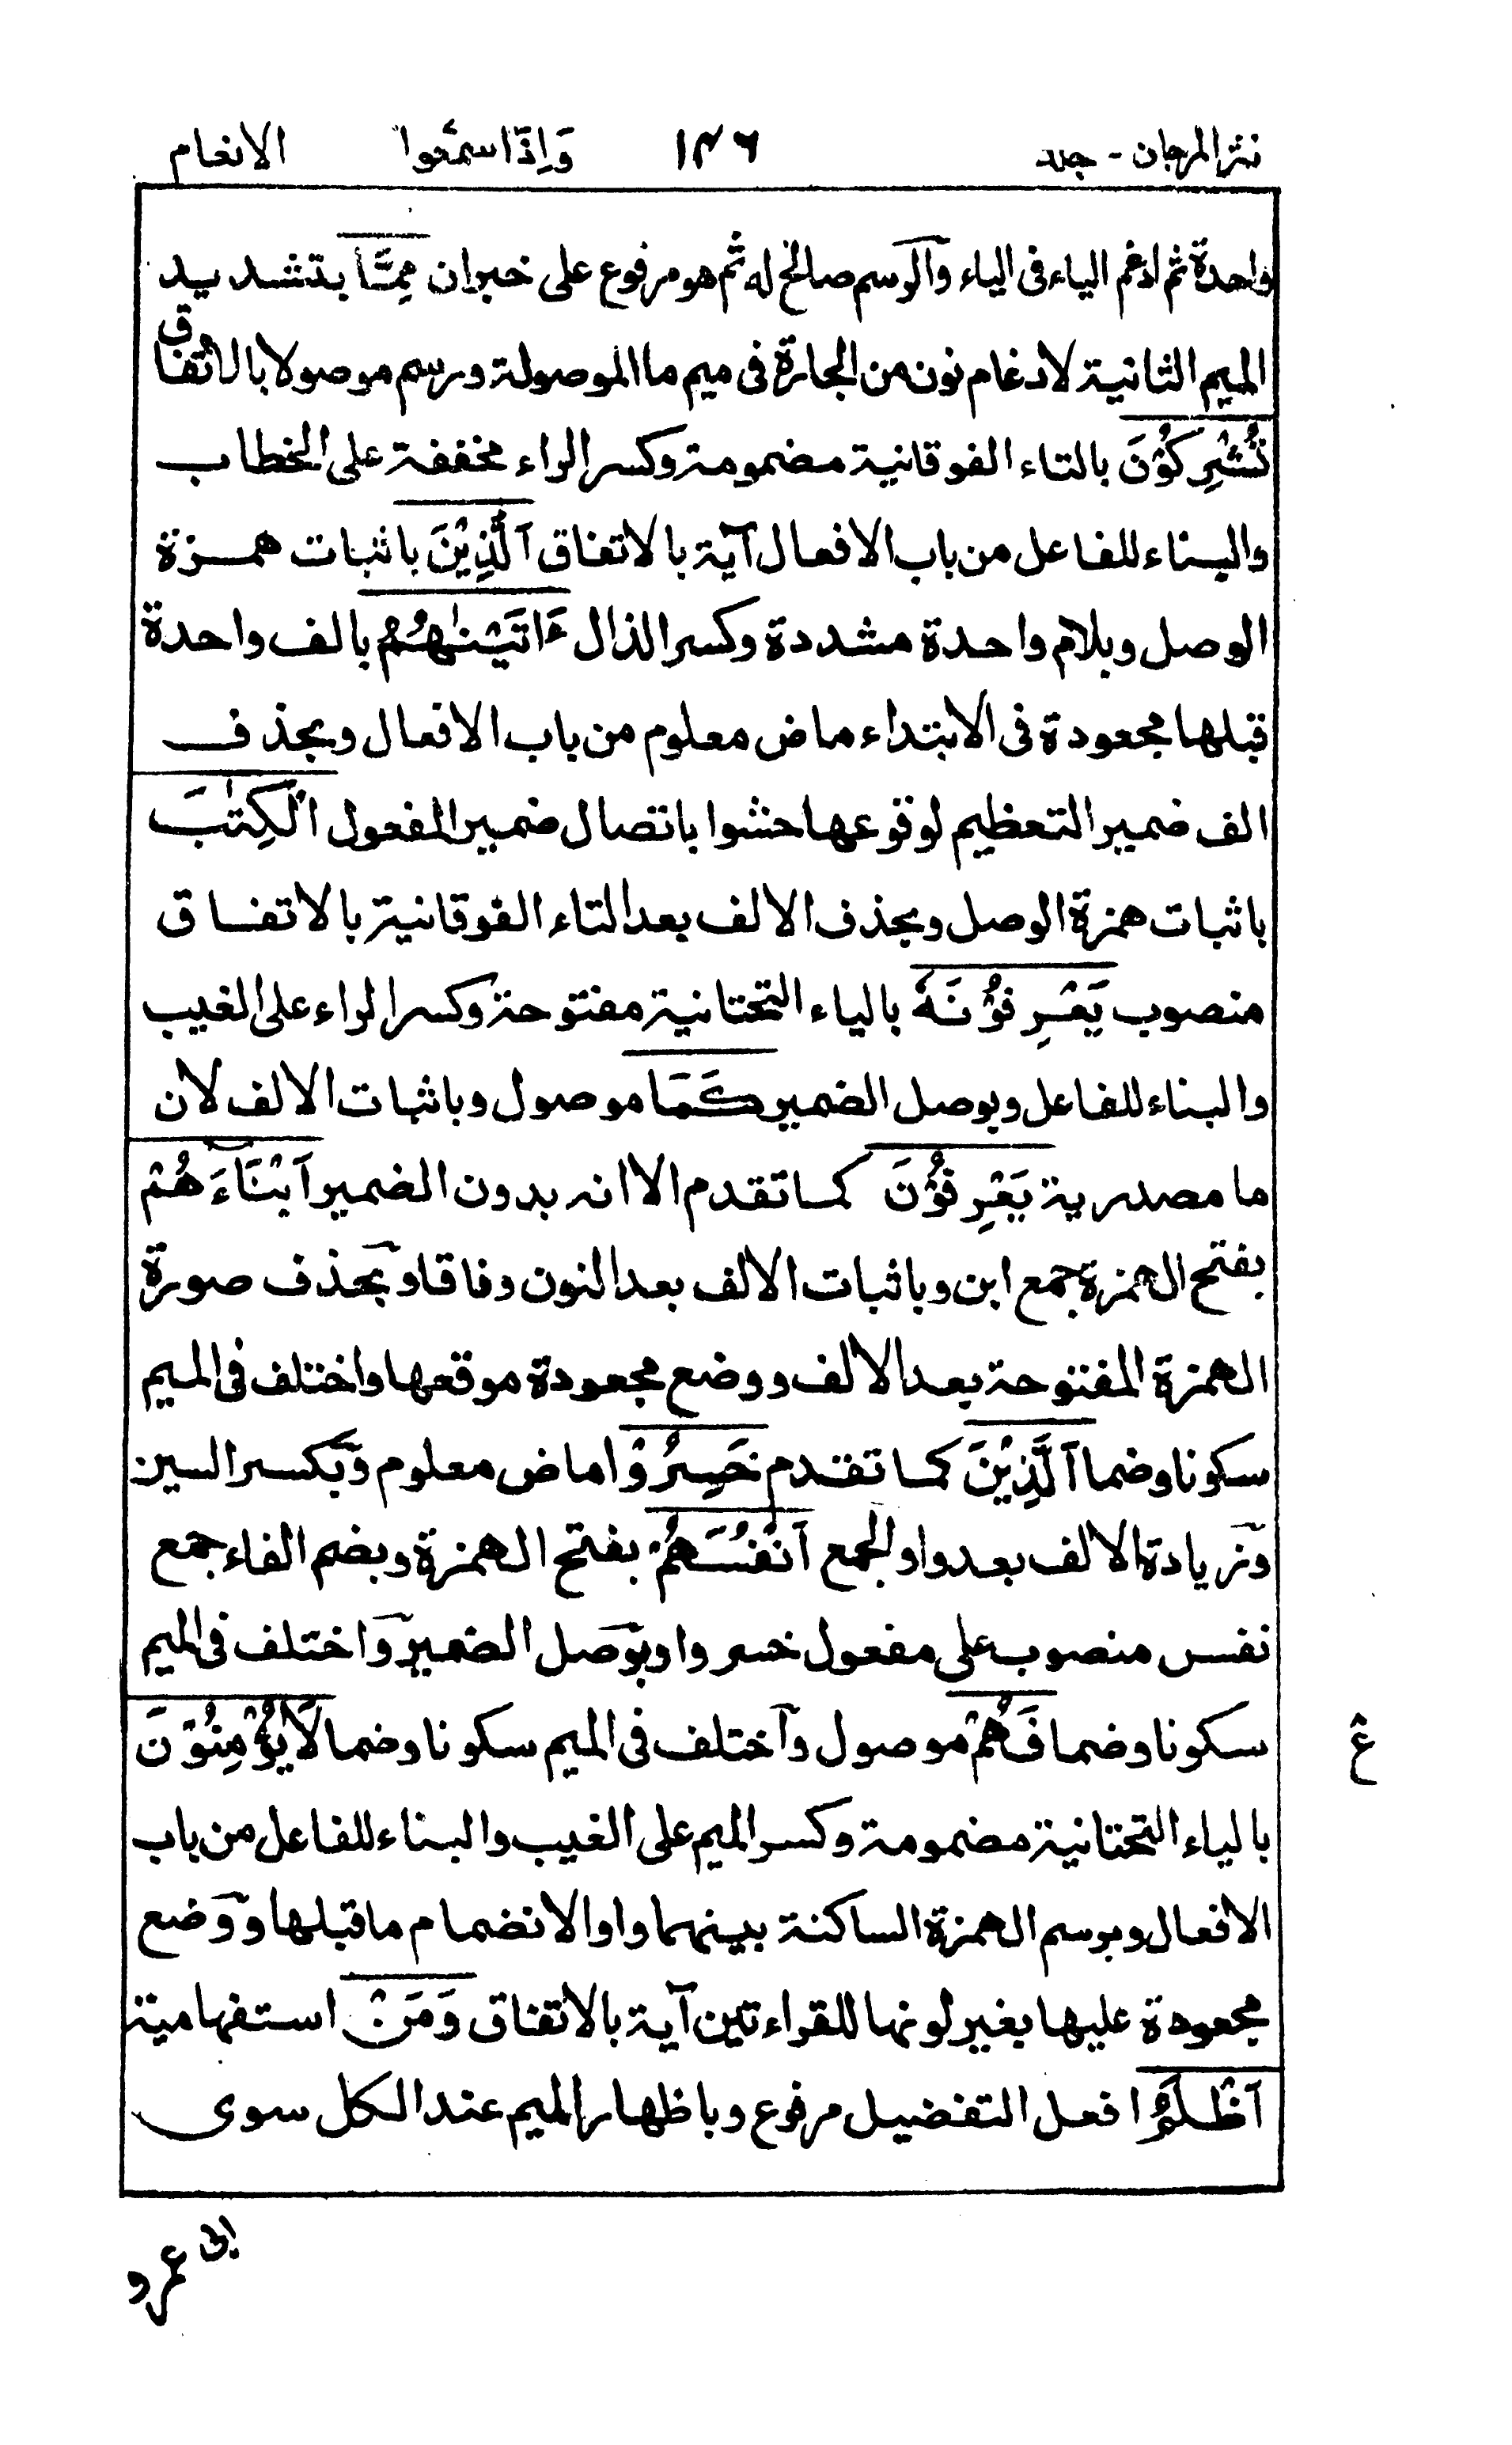 نثر المرجان - جلد ١٤٦ وَاِذَا سمعُوا الانعام
واحدة ثم ادغم الياء فى الياء والرسم صالح له ثم هو مرفوع على خبر ان مِمَّا بتشديد
الميم الثانية لادغام نون من الجارة فى ميم ما الموصولة ورسم موصولا بالاتفاق
تُشْرِكُوْنَ بالتاء الفوقانية مضمومة وكسر الراء مخففة على الخطاب
والبناء للفاعل من باب الافعال آية بالاتفاق اَلَّذِيْنَ باثبات همزة
الوصل وبلام واحدة مشددة وكسر الذال ءَاتَيْنٰهُمُ بالف واحدة
قبلها مجعودة فى الابتداء ماض معلوم من باب الافعال وبحذف
الف ضمير التعظيم لوقوعها حشوا باتصال ضمير المفعول الْكِتٰبَ
باثبات همزة الوصل وبحذف الالف بعد التاء الفوقانية بالاتفاق
منصوب يَعْرِفُوْنَهٗ بالياء التحتانية مفتوحة وكسر الراء على الغيب
والبناء للفاعل وبوصل الضمير كَمَا موصول وباثبات الالف لان
ما مصدرية يَعْرِفُوْنَ كما تقدم الا انه بدون الضمير اَبْنَآءَهُمْ
بفتح الهمزة جمع ابن وباثبات الالف بعد النون وفاقا وبحذف صورة
الهمزة المفتوحة بعد الالف ووضع مجعودة موقعها واختلف فى الميم
سكونا وضما اَلَّذِيْنَ كما تقدم خَسِرُوْا ماض معلوم وبكسر السين
وزيادة الالف بعد واو الجمع اَنْفُسَهُمْ بفتح الهمزة وبضم الفاء جمع
نفس منصوب على مفعول خسروا وبوصل الضمير واختلف فى الميم
سكونا وضما فَهُمْ موصول وآختلف فى الميم سكونا وضما لَا يُؤْمِنُوْنَ
ع
بالياء التحتانية مضمومة وكسر الميم على الغيب والبناء للفاعل من باب
الافعال وبرسم الهمزة الساكنة بينهما واوا لانضمام ما قبلها ووضع
مجعودة عليها بغير لونها للقراءتين آية بالاتفاق وَمَنْ استفهامية
اَظْلَمُ افعل التفضيل مرفوع وباظهار الميم عند الكل سوى
ابى عمرو